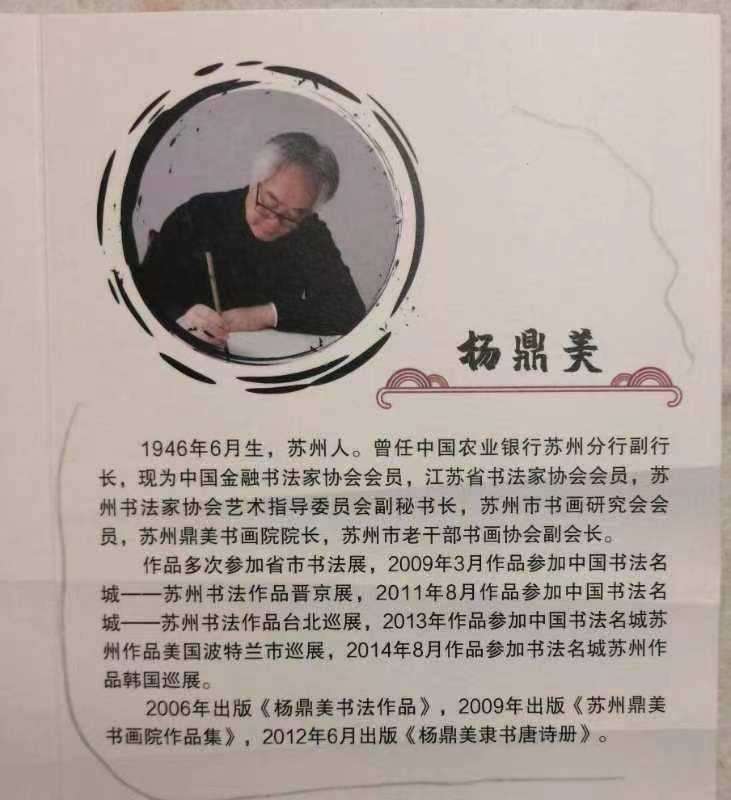 杨鼎美
1946年6月生，苏州人。曾任中国农业银行苏州分行副行
长，现为中国金融书法家协会会员，江苏省书法家协会会员，苏
州书法家协会艺术指导委员会副秘书长，苏州市书画研究会会
员，苏州鼎美书画院院长，苏州市老干部书画协会副会长。
作品多次参加省市书法展，2009年3月作品参加中国书法名
城——苏州书法作品晋京展，2011年8月作品参加中国书法名
城——苏州书法作品台北巡展，2013年作品参加中国书法名城苏
州作品美国波特兰市巡展，2014年8月作品参加书法名城苏州作
品韩国巡展。
2006年出版《杨鼎美书法作品》，2009年出版《苏州鼎美
书画院作品集》，2012年6月出版《杨鼎美隶书唐诗册》。